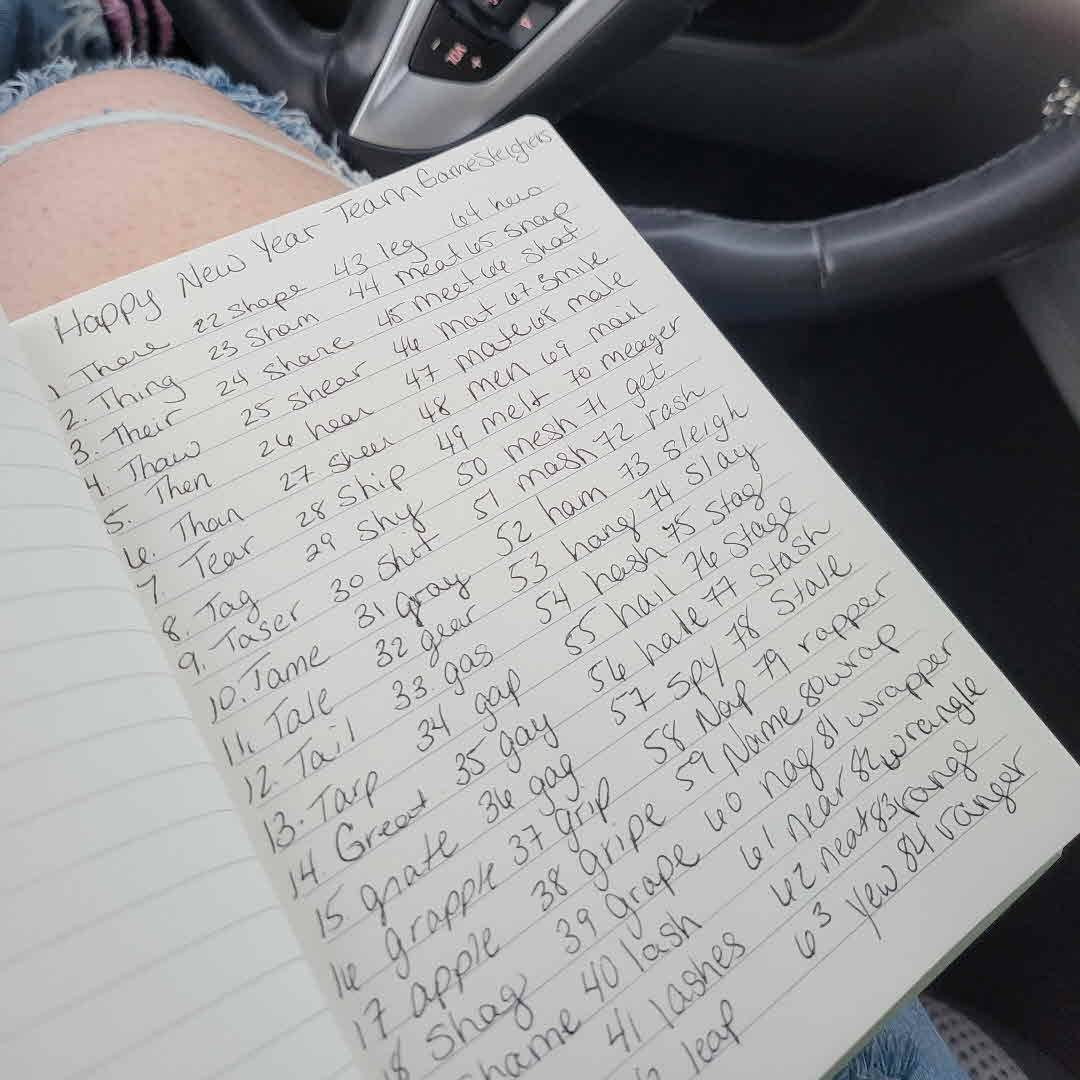 Happy New Year Team GameSleighers
1. There 22 Shape 43 leg 64
2. Thing 23 Sham 44 meat 65 Snap
3. Their 24 Share 45 meet 66
4. Thaw 25 Shear 46 mat 67 Smile
5. Then 26 hear 47 mate 68 male
6. Than 27 Sheer 48 men 69 mail
7. Tear 28 Ship 49 melt 70 meager
8. Tag 29 Shy 50 mesh 71 get
9. Taser 30 Shit 51 mash 72 rash
10. Tame 31 Gray 52 ham 73 Sleigh
11. Tale 32 gear 53 hang 74 Slay
12. Tail 33 gas 54 hash 75 Stag
13. Tarp 34 gap 55 hail 76 Stage
14. Great 35 gay 56 hale 77 Stash
15 gnate 36 gag 57 Spy 78 Stale
16 grapple 37 grip 58 Nap 79 rapper
17 apple 38 gripe 59 Name 80 wrap
18 Shag 39 grape 60 nag 81 wrapper
hame 40 lash 61 near 82 wrangle
41 lashes 62 neat 83 range
leap 63 Yew 84 ranger